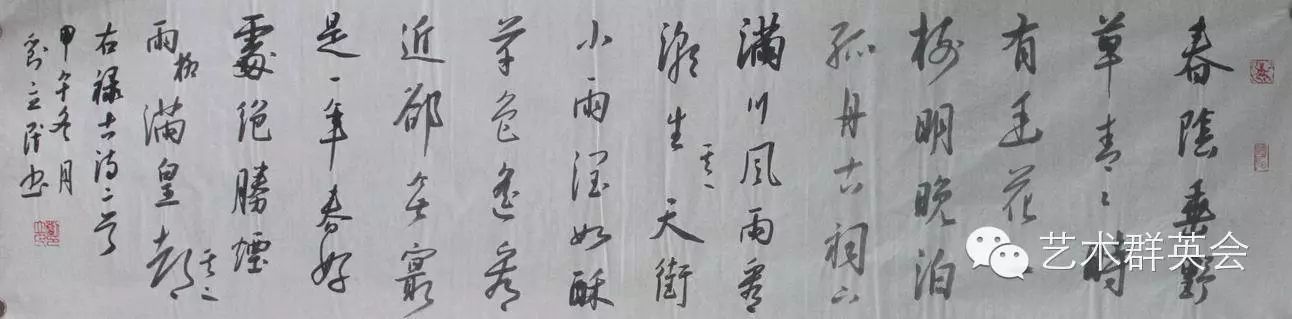 春陰垂野
草青々時
有幽花一
樹明晚泊
孤舟古祠下
滿川風雨看
潮生 其一 天街
小雨潤如酥
草色遙看
近卻無最
是一年春好
處絕勝煙
雨柳滿皇都 其二
右録古詩二首
甲午冬月
劉立民书
艺术群英会